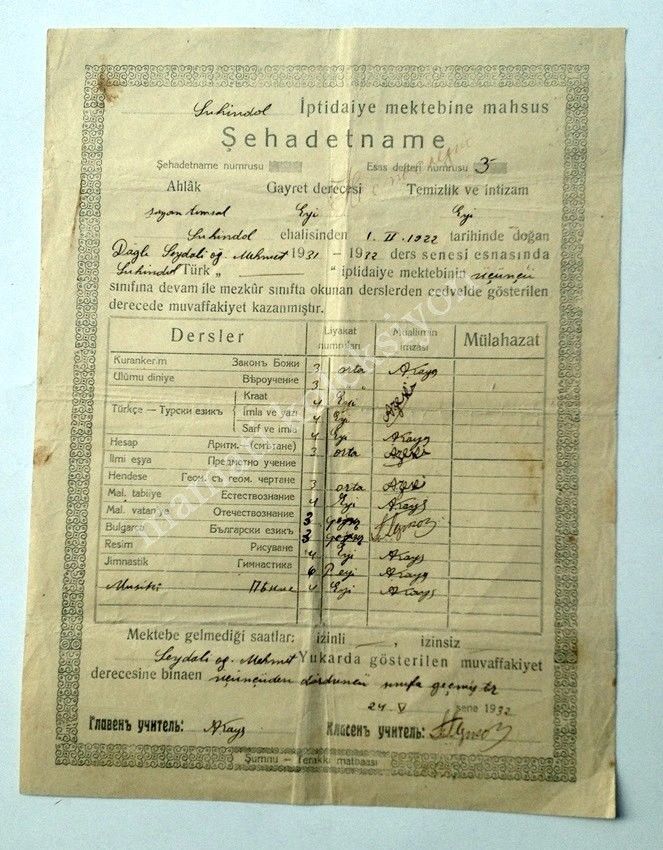 Suhindol İptidaiye mektebine mahsus
Şehadetname
Şehadetname numrusu Esas defteri numrusu 5
Ahlâk Gayret derecesi Temizlik ve intizam
Eyi Eyi
Suhindol ehalisinden 1. II. 1922 tarihinde doğan
Dağlı Seydali oğ. Mehmet 1931 – 1932 ders senesi esnasında
Suhindol Türk „ “ iptidaiye mektebinin üçüncü
sınıfına devam ile mezkûr sınıfta okunan derslerden cedvelde gösterilen
derecede muvaffakiyet kazanmıştır.
Dersler Liyakat numruları Muallimin imzası Mülahazat
Kurankerım Законъ Божи 3 orta
Ulûmu diniye Вѣроучение 3 "
Türkçe — Турски езикъ Kraat 4 Eyi
İmla ve yazı 4 Eyi
Sarf ve imla 4 Eyi
Hesap Аритм. (смѣтане) 3 orta
Ilmi eşya Предметно учение
Hendese Геом. съ геом. чертане 3 orta
Mal. tabiiye Естествознание 4 Eyi
Mal. vataniye Отечествознание 3
Bulgarca Български езикъ 3
Resim Рисуване 4 Eyi
Jimnastik Гимнастика 6 P. eyi
Musiki Пѣние 4 Eyi
Mektebe gelmediği saatlar: izinli — , izinsiz —
Seydali oğ. Mehmet Yukarda gösterilen muvaffakiyet
derecesine binaen üçüncüden dördüncü sınıfa geçmiştir
24 V sene 1932
Главенъ учитель: Класенъ учитель:
Şumnu — Terakki matbaası